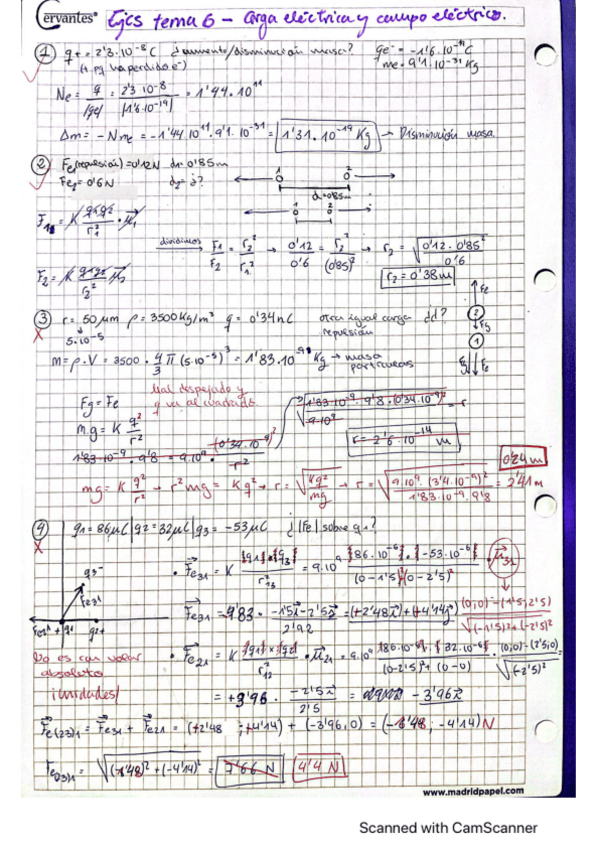 Cervantes® Ejcs tema 6 - Carga eléctrica y campo eléctrico.
① q+ = 2'3·10⁻⁸C ¿aumento/disminución masa? qe⁻ = -1'6·10⁻¹⁹C
(+ pq ha perdido e⁻) me = 9'1·10⁻³¹Kg
Ne = q/|qe| = 2'3·10⁻⁸/|1'6·10⁻¹⁹| = 1'44·10¹¹
Δm = -Nme = -1'44·10¹¹·9'1·10⁻³¹ = 1'31·10⁻¹⁹ Kg → Disminución masa.
② Fe₁(repulsión) = 0'12N d₁ = 0'85m
Fe₂ = 0'6N d₂ = ¿?
d = 0'85m
F₁ = K q₁q₂/r₁² · μ₁
dividimos F₁/F₂ = r₂²/r₁² → 0'12/0'6 = r₂²/(0'85)² → r₂ = √(0'12·0'85²/0'6)
F₂ = K q₁q₂/r₂² · μ₂
r₂ = 0'38m
③ r = 50μm ρ = 3500Kg/m³ q = 0'34nC otra igual carga ¿d?
5·10⁻⁵ repulsión
m = ρ·V = 3500·4/3 π(5·10⁻⁵)³ = 1'83·10⁻⁹ Kg → masa partículas
Mal despejado y
q va al cuadrado
Fg = Fe
m·g = K q²/r²
√(1'83·10⁻⁹·9'8·(0'34·10⁻⁹)²/9·10⁹) = r
1'83·10⁻⁹·9'8 = 9·10⁹·(0'34·10⁻⁹)²/r²
r = 2'6·10⁻¹⁴ m
0'24m
mg = K q²/r² → r²mg = Kq² → r = √(Kq²/mg) → r = √(9·10⁹·(3'4·10⁻⁹)²/1'83·10⁻⁹·9'8) = 2'41m
④ q₁ = 86μC | q₂ = 32μC | q₃ = -53μC ¿|Fe| sobre q₁?
Fe₃₁ = K |q₁|·|q₃|/r₁₃² = 9·10⁹ |86·10⁻⁶|·|-53·10⁻⁶|/(0-1'5)²(0-2'5)² · μ₃₁
Fe₃₁ = 9'83 · -1'5i-2'5j/2'92 = (+2'48i)+(+4'14j) (0,0)-(1'5,2'5)/√((-1'5)²+(-2'5)²
No es con valor
absoluto
¡unidades!
Fe₂₁ = K |q₁|·|q₂|/r₁₂² · μ₂₁ = 9·10⁹ |86·10⁻⁶|·|32·10⁻⁶|/(0-2'5)²+(0-0) · (0,0)-(2'5,0)/√(-2'5)² =
= +3'96 · -2'5i/2'5 = -3'96i
Fe(23)₁ = Fe₃₁ + Fe₂₁ = (+2'48 ; +4'14) + (-3'96,0) = (-1'48, -4'14)N
= √((-1'48)²+(-4'14)²) = 7'66 N 4'4 N
www.madridpapel.com
Scanned with CamScanner